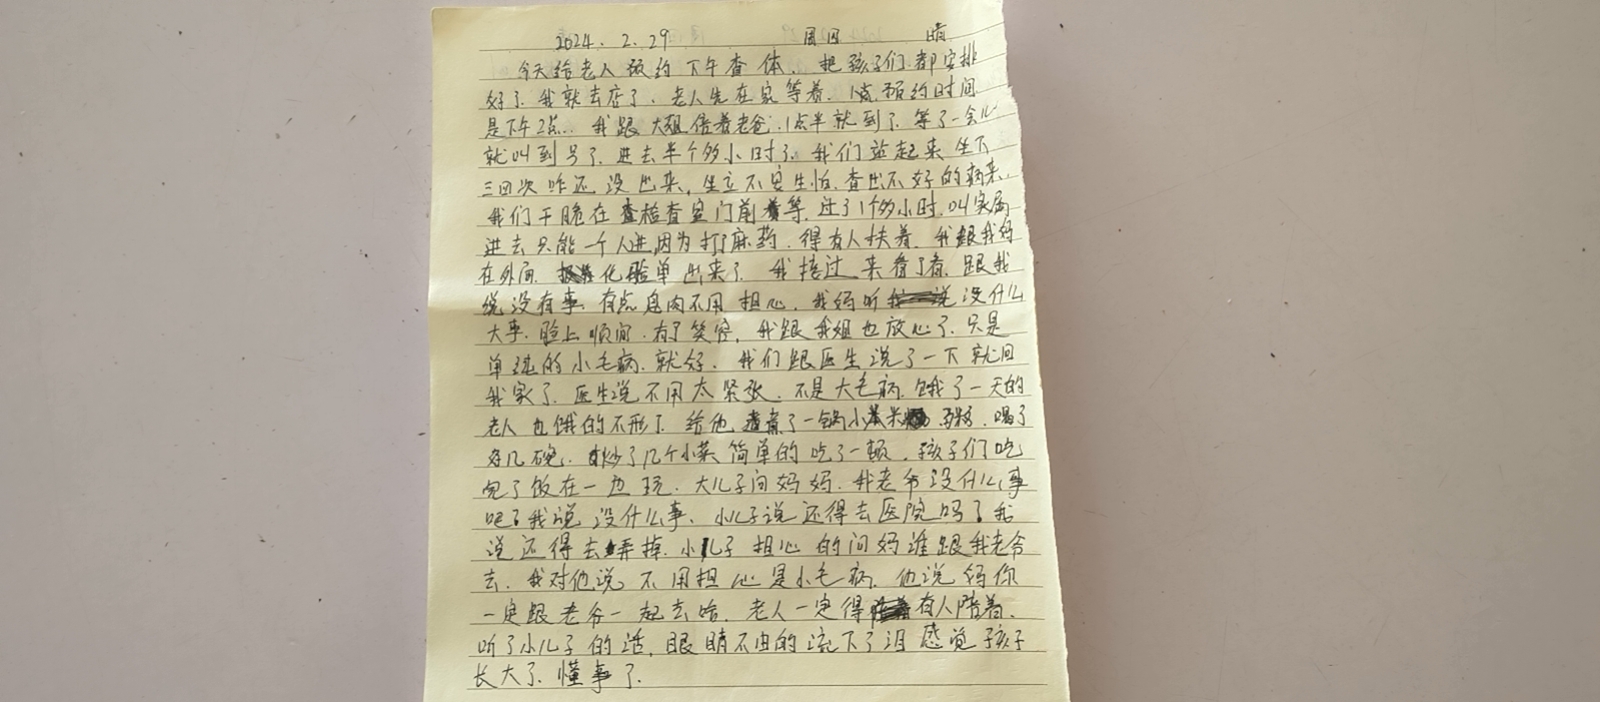 2024. 2. 29 周四 晴
今天给老人预约下午查体、把孩子们都安排
好了.我就去店了.老人先在家等着. 预约时间
是下午2点..我跟大姐陪着老爸.1点半就到了.等了一会儿
就叫到号了.进去半个多小时了.我们站起来坐下
三四次咋还没出来,坐立不安生怕.查出不好的病来.
我们干脆在检查室门前等.过了1个多小时.叫家属
进去只能一个人进,因为打了麻药.得有人扶着.我跟我妈
在外间. 化验单出来了.我接过来看了看.跟我
说没有事.有点息肉不用担心.我妈听 没什么
大事.脸上顺间.有了笑容,我跟我姐也放心了.只是
单纯的小毛病.就好.我们跟医生说了一下就回
我家了.医生说不用太紧张.不是大毛病.饿了一天的
老人也饿的不形了.给他煮了一锅小米 .喝了
好几碗.炒了几个小菜简单的吃了一顿.孩子们吃
完了饭在一边玩.大儿子问妈妈.我老爷没什么事
吧?我说没什么事.小儿子说还得去医院吗?我
说还得去弄掉.小儿子担心的问妈谁跟我老爷
去.我对他说不用担心是小毛病.他说妈你
一定跟老爷一起去哈.老人一定得有人陪着.
听了小儿子的话,眼睛不由的流下了泪感觉孩子
长大了.懂事了.